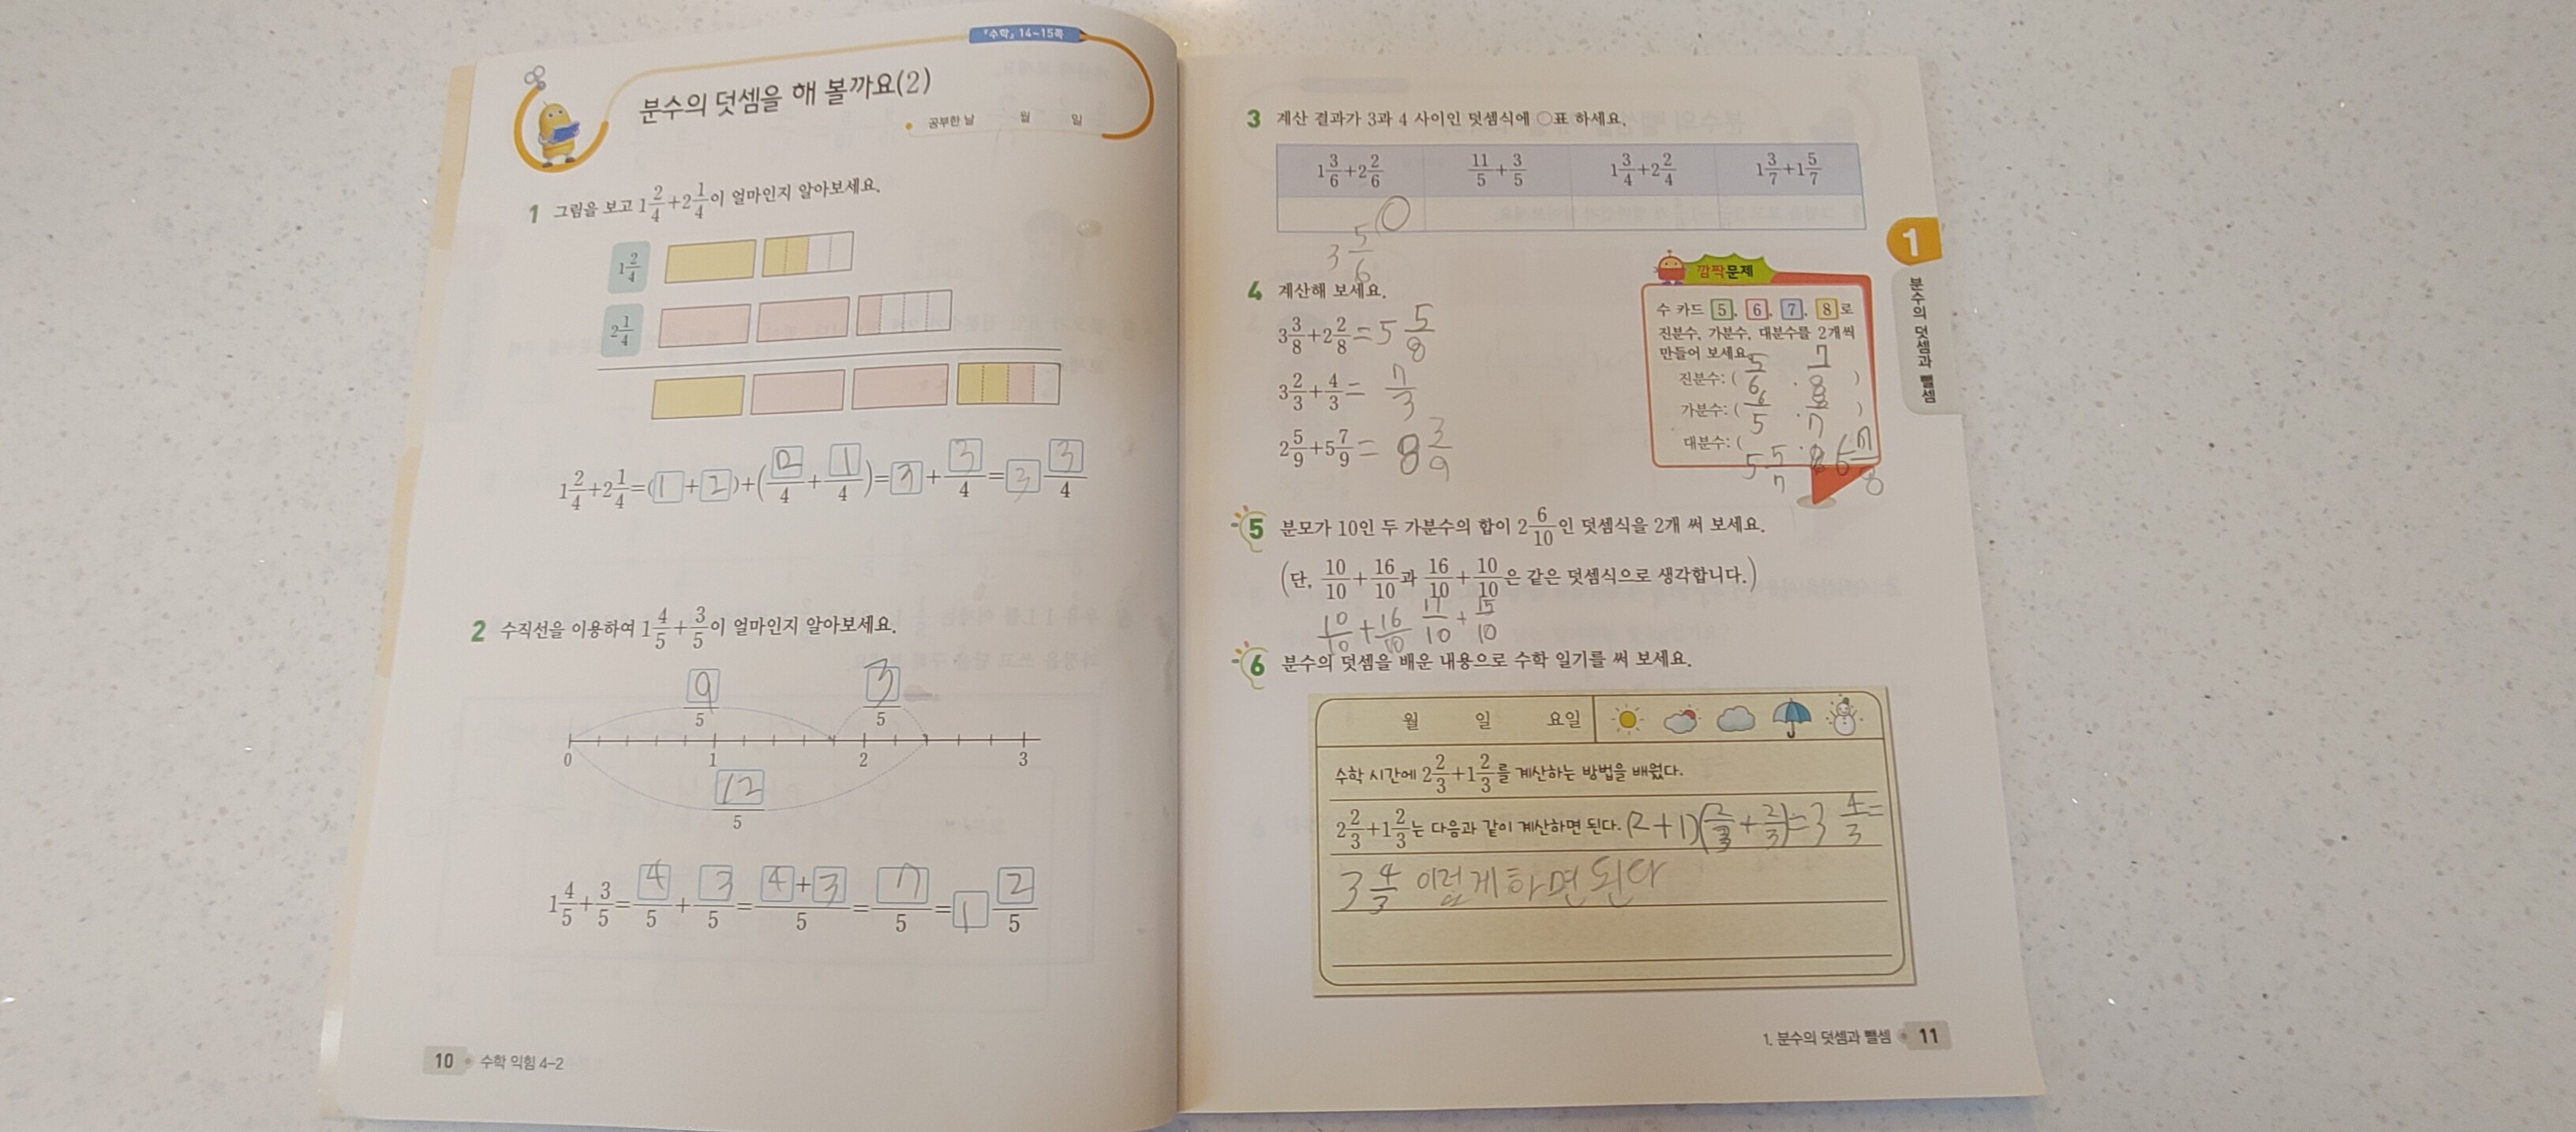 『수학』 14~15쪽
분수의 덧셈을 해 볼까요(2)
공부한 날 월 일
1 그림을 보고 1 2/4 + 2 1/4 이 얼마인지 알아보세요.
1 2/4
2 1/4
1 2/4 + 2 1/4 = (1 + 2) + (2/4 + 1/4) = 3 + 3/4 = 3 3/4
2 수직선을 이용하여 1 4/5 + 3/5 이 얼마인지 알아보세요.
9/5 3/5
0 1 2 3
12/5
1 4/5 + 3/5 = 4/5 + 3/5 = 4+3/5 = 7/5 = 1 2/5
10 수학 익힘 4-2
3 계산 결과가 3과 4 사이인 덧셈식에 ○표 하세요.
1 3/6 + 2 2/6 11/5 + 3/5 1 3/4 + 2 2/4 1 3/7 + 1 5/7
○
3 5/6
4 계산해 보세요.
3 3/8 + 2 2/8 = 5 5/8
3 2/3 + 4/3 = 7/3
2 5/9 + 5 7/9 = 8 3/9
깜짝문제
수 카드 5, 6, 7, 8 로
진분수, 가분수, 대분수를 2개씩
만들어 보세요.
진분수: ( 5/6 , 7/8 )
가분수: ( 6/5 , 8/7 )
대분수: ( 5 5/7 , 6 7/8
5 분모가 10인 두 가분수의 합이 2 6/10 인 덧셈식을 2개 써 보세요.
(단, 10/10 + 16/10 과 16/10 + 10/10 은 같은 덧셈식으로 생각합니다.)
10/10 + 16/10 11/10 + 15/10
6 분수의 덧셈을 배운 내용으로 수학 일기를 써 보세요.
월 일 요일
수학 시간에 2 2/3 + 1 2/3 를 계산하는 방법을 배웠다.
2 2/3 + 1 2/3 는 다음과 같이 계산하면 된다. (2+1)(2/3 + 2/3) = 3 4/3 =
3 4/3 이렇게 하면 된다
1
분수의 덧셈과 뺄셈
1. 분수의 덧셈과 뺄셈 11